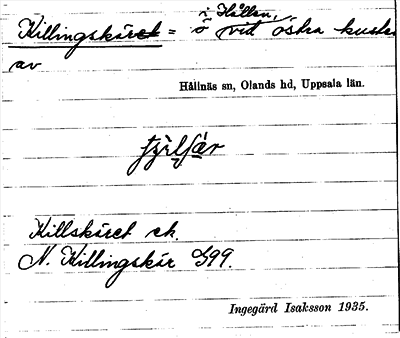 i Hållen,
Killingskäret = ö vid östra kusten
av
Hållnäs sn, Olands hd, Uppsala län.
Killskäret ek.
N. Killingskär 399.
Ingegärd Isaksson 1935.